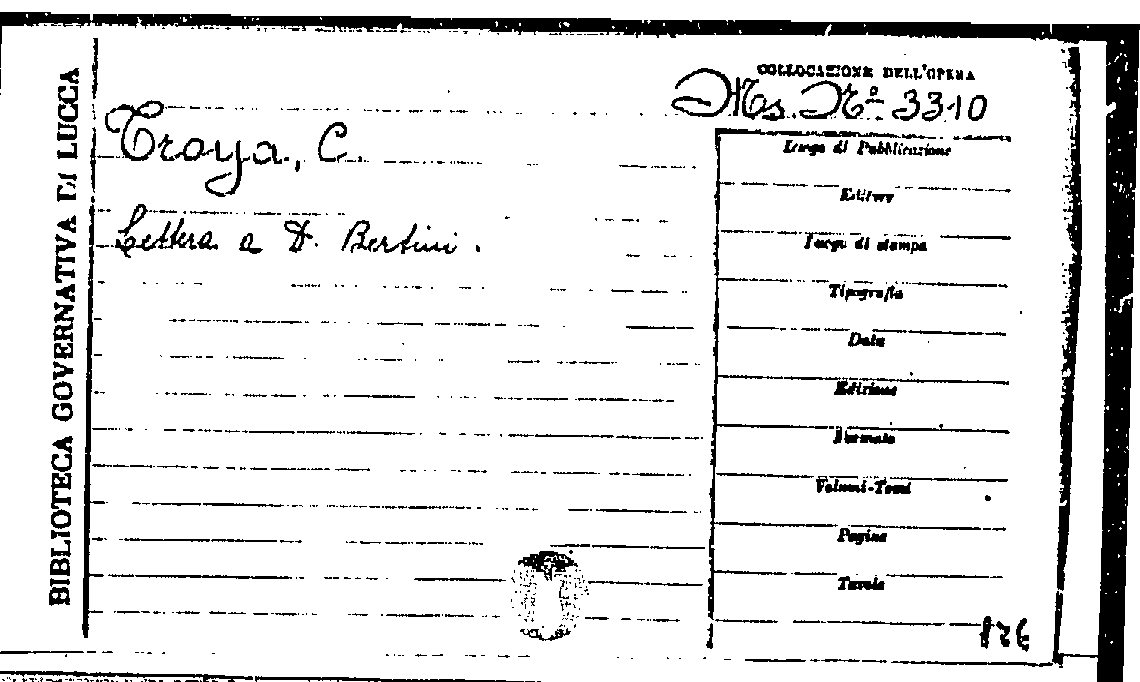 BIBLIOTECA GOVERNATIVA DI LUCCA
COLLOCAZIONE DELL'OPERA
Ms. Nº 3310
Troya, C.
Lettera a D. Bertini.
Luogo di Pubblicazione
Editore
Luogo di stampa
Tipografia
Data
Edizione
Formato
Volumi-Tomi
Pagine
Tavole